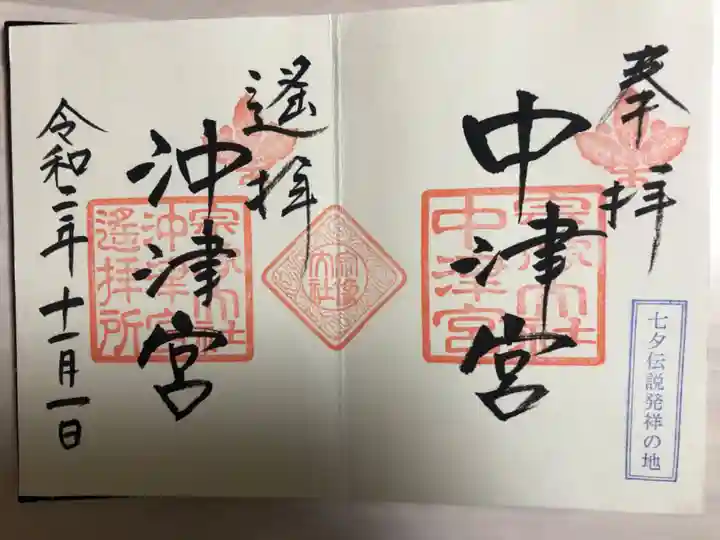 奉拝
中津宮
宗像大社
中津宮
七夕伝説発祥の地
宗像大社
遙拝
沖津宮
宗像大社
沖津宮
遙拝所
令和二年十一月一日